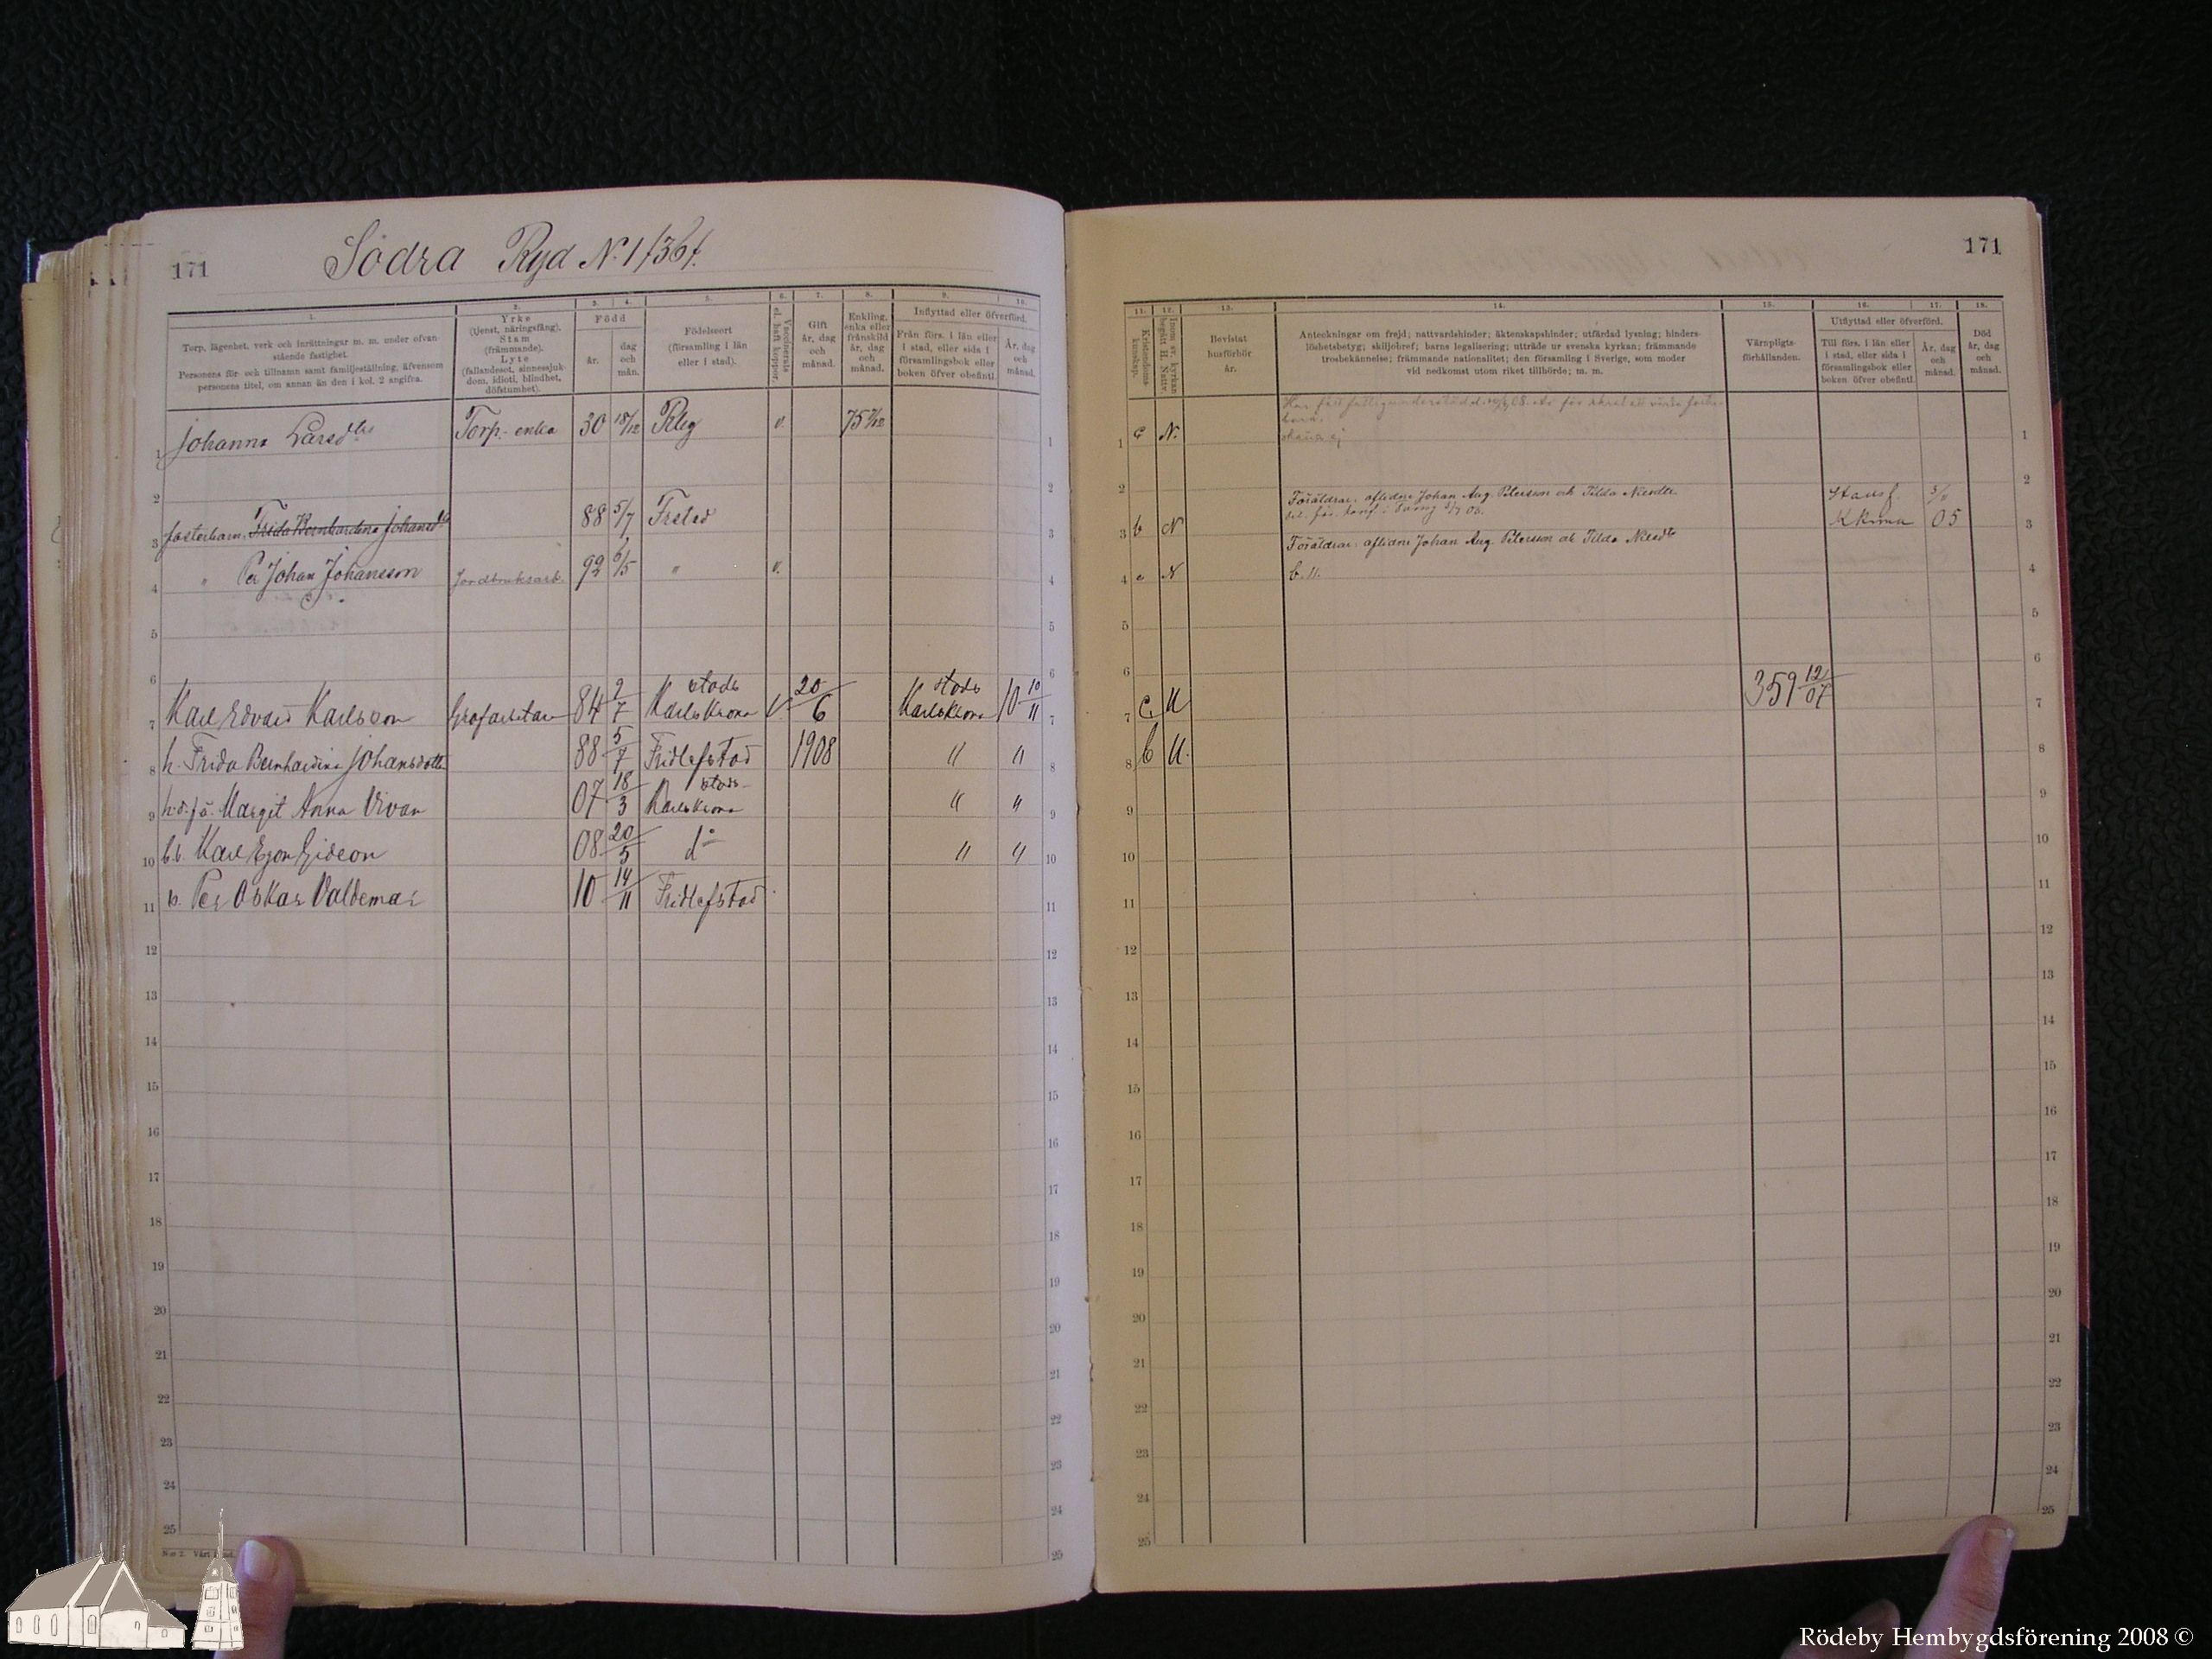 171
Södra Ryd N:1 1/36 f.
1.
Torp, lägenhet, verk och inrättningar m. m. under ofvanstående fastighet.
Personens för- och tillnamn samt familjeställning, äfvensom personens titel, om annan än den i kol. 2 angifna.
2.
Yrke
(tjenst, näringsfång).
Stam
(främmande).
Lyte
(fallandesot, sinnessjukdom, idioti, blindhet, döfstumhet).
3. 4.
Född
år.
dag och mån.
5.
Födelseort
(församling i län eller i stad).
6.
Vaccinerats el. haft koppor.
7.
Gift
år, dag och månad.
8.
Enkling, enka eller frånskild
år, dag och månad.
9. 10.
Inflyttad eller öfverförd.
Från förs. i län eller i stad, eller sida i församlingsbok eller boken öfver obefintl.
År, dag och månad.
1 Johanna Larsdtr Torp.-enka 30 18/12 Rbg v. 75
2
3 fosterbarn: Frida Bernhardina Johansdtr 88 5/7 Frstad
4 " Per Johan Johansson Jordbruksarb. 92 6/5 " v.
5
6
7 Karl Edvard Karlsson Grofarbetare 84 2/7 Karlskrona stads v. 20/6 Karlskrona stads 10 10/11
8 h. Frida Bernhardina Johansdotter 88 5/7 Fridlefstad 1908 " "
9 h. d. f. ä. Margit Anna Vivan 07 18/3 Karlskrona stads " "
10 b.b. Karl Egon Gideon 08 20/5 d:o " "
11 b. Per Oskar Valdemar 10 14/11 Fridlefstad
12
13
14
15
16
17
18
19
20
21
22
23
24
25
171
11.
Kristendomskunskap.
12.
Inom sv. kyrkan begått H. Nattv.
13.
Bevistat husförhör
år.
14.
Anteckningar om frejd; nattvardshinder; äktenskapshinder; utfärdad lysning; hinderslöshetsbetyg; skiljobref; barns legalisering; utträde ur svenska kyrkan; främmande trosbekännelse; främmande nationalitet; den församling i Sverige, som moder vid nedkomst utom riket tillhörde; m. m.
15.
Värnpligtsförhållanden.
16. 17.
Utflyttad eller öfverförd.
Till förs. i län eller i stad, eller sida i församlingsbok eller boken öfver obefintl.
År, dag och månad.
18.
Död
år, dag och månad.
1 c N.
2
Föräldrar: aflidne Johan Aug. Peterson och Tilda Nilsdtr.
3 b N Kkrona 05
Föräldrar: aflidne Johan Aug. Peterson och Tilda Nilsdtr
4 c N b. 11.
5
6
7 c. U 359 12/07
8 b U.
9
10
11
12
13
14
15
16
17
18
19
20
21
22
23
24
25
Rödeby Hembygdsförening 2008 ©